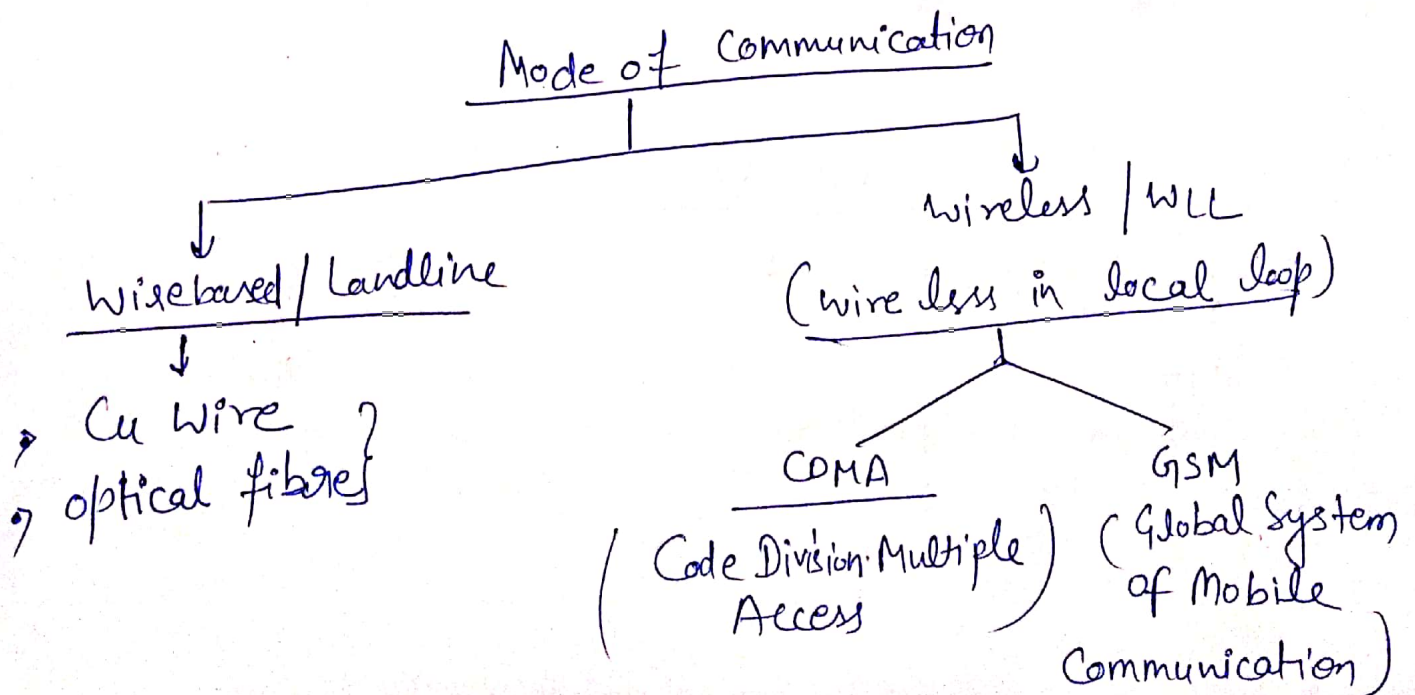 Mode of Communication
Wirebased / Landline
Cu Wire
optical fibres
wireless / WLL
(wire less in local loop)
CDMA
(Code Division Multiple
Access)
GSM
(Global System
of Mobile
Communication)